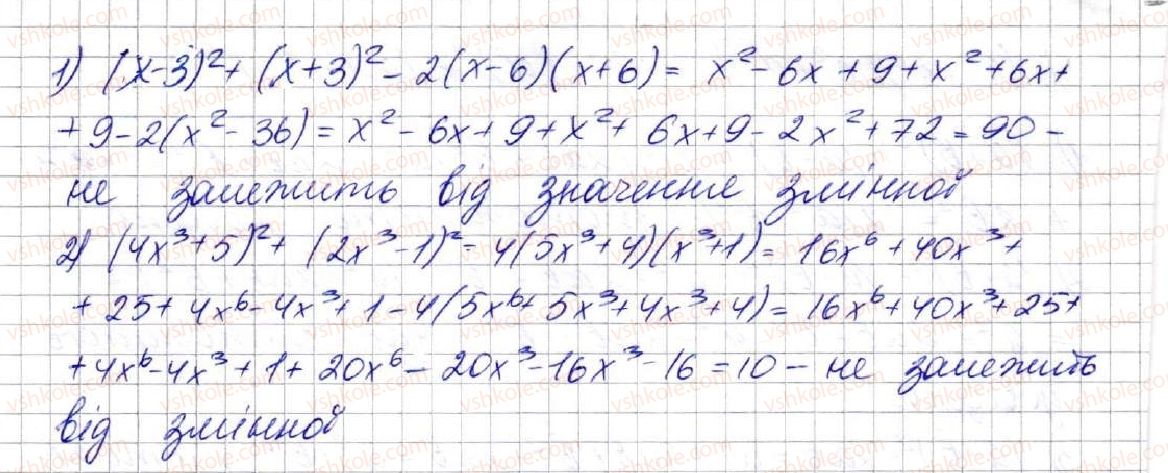 1) (x-3)²+ (x+3)² - 2(x-6)(x+6) = x² - 6x + 9 + x² + 6x +
+ 9 - 2(x² - 36) = x² - 6x + 9 + x² + 6x + 9 - 2x² + 72 = 90 -
не залежить від значення змінної
2) (4x³+5)² + (2x³-1)² - 4(5x³+4)(x³+1) = 16x⁶ + 40x³ +
+ 25 + 4x⁶ - 4x³ + 1 - 4(5x⁶ + 5x³ + 4x³ + 4) = 16x⁶ + 40x³ + 25 +
+ 4x⁶ - 4x³ + 1 + 20x⁶ - 20x³ - 16x³ - 16 = 10 - не залежить
від змінної